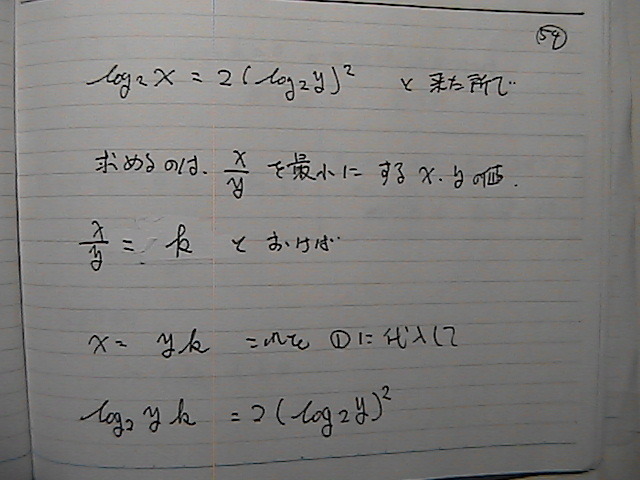 54
log₂x = 2(log₂y)² と来た所で
求めるのは、x/y を最小にする x、yの値.
x/y = k とおけば
x = yk これを ①に代入して
log₂yk = 2(log₂y)²